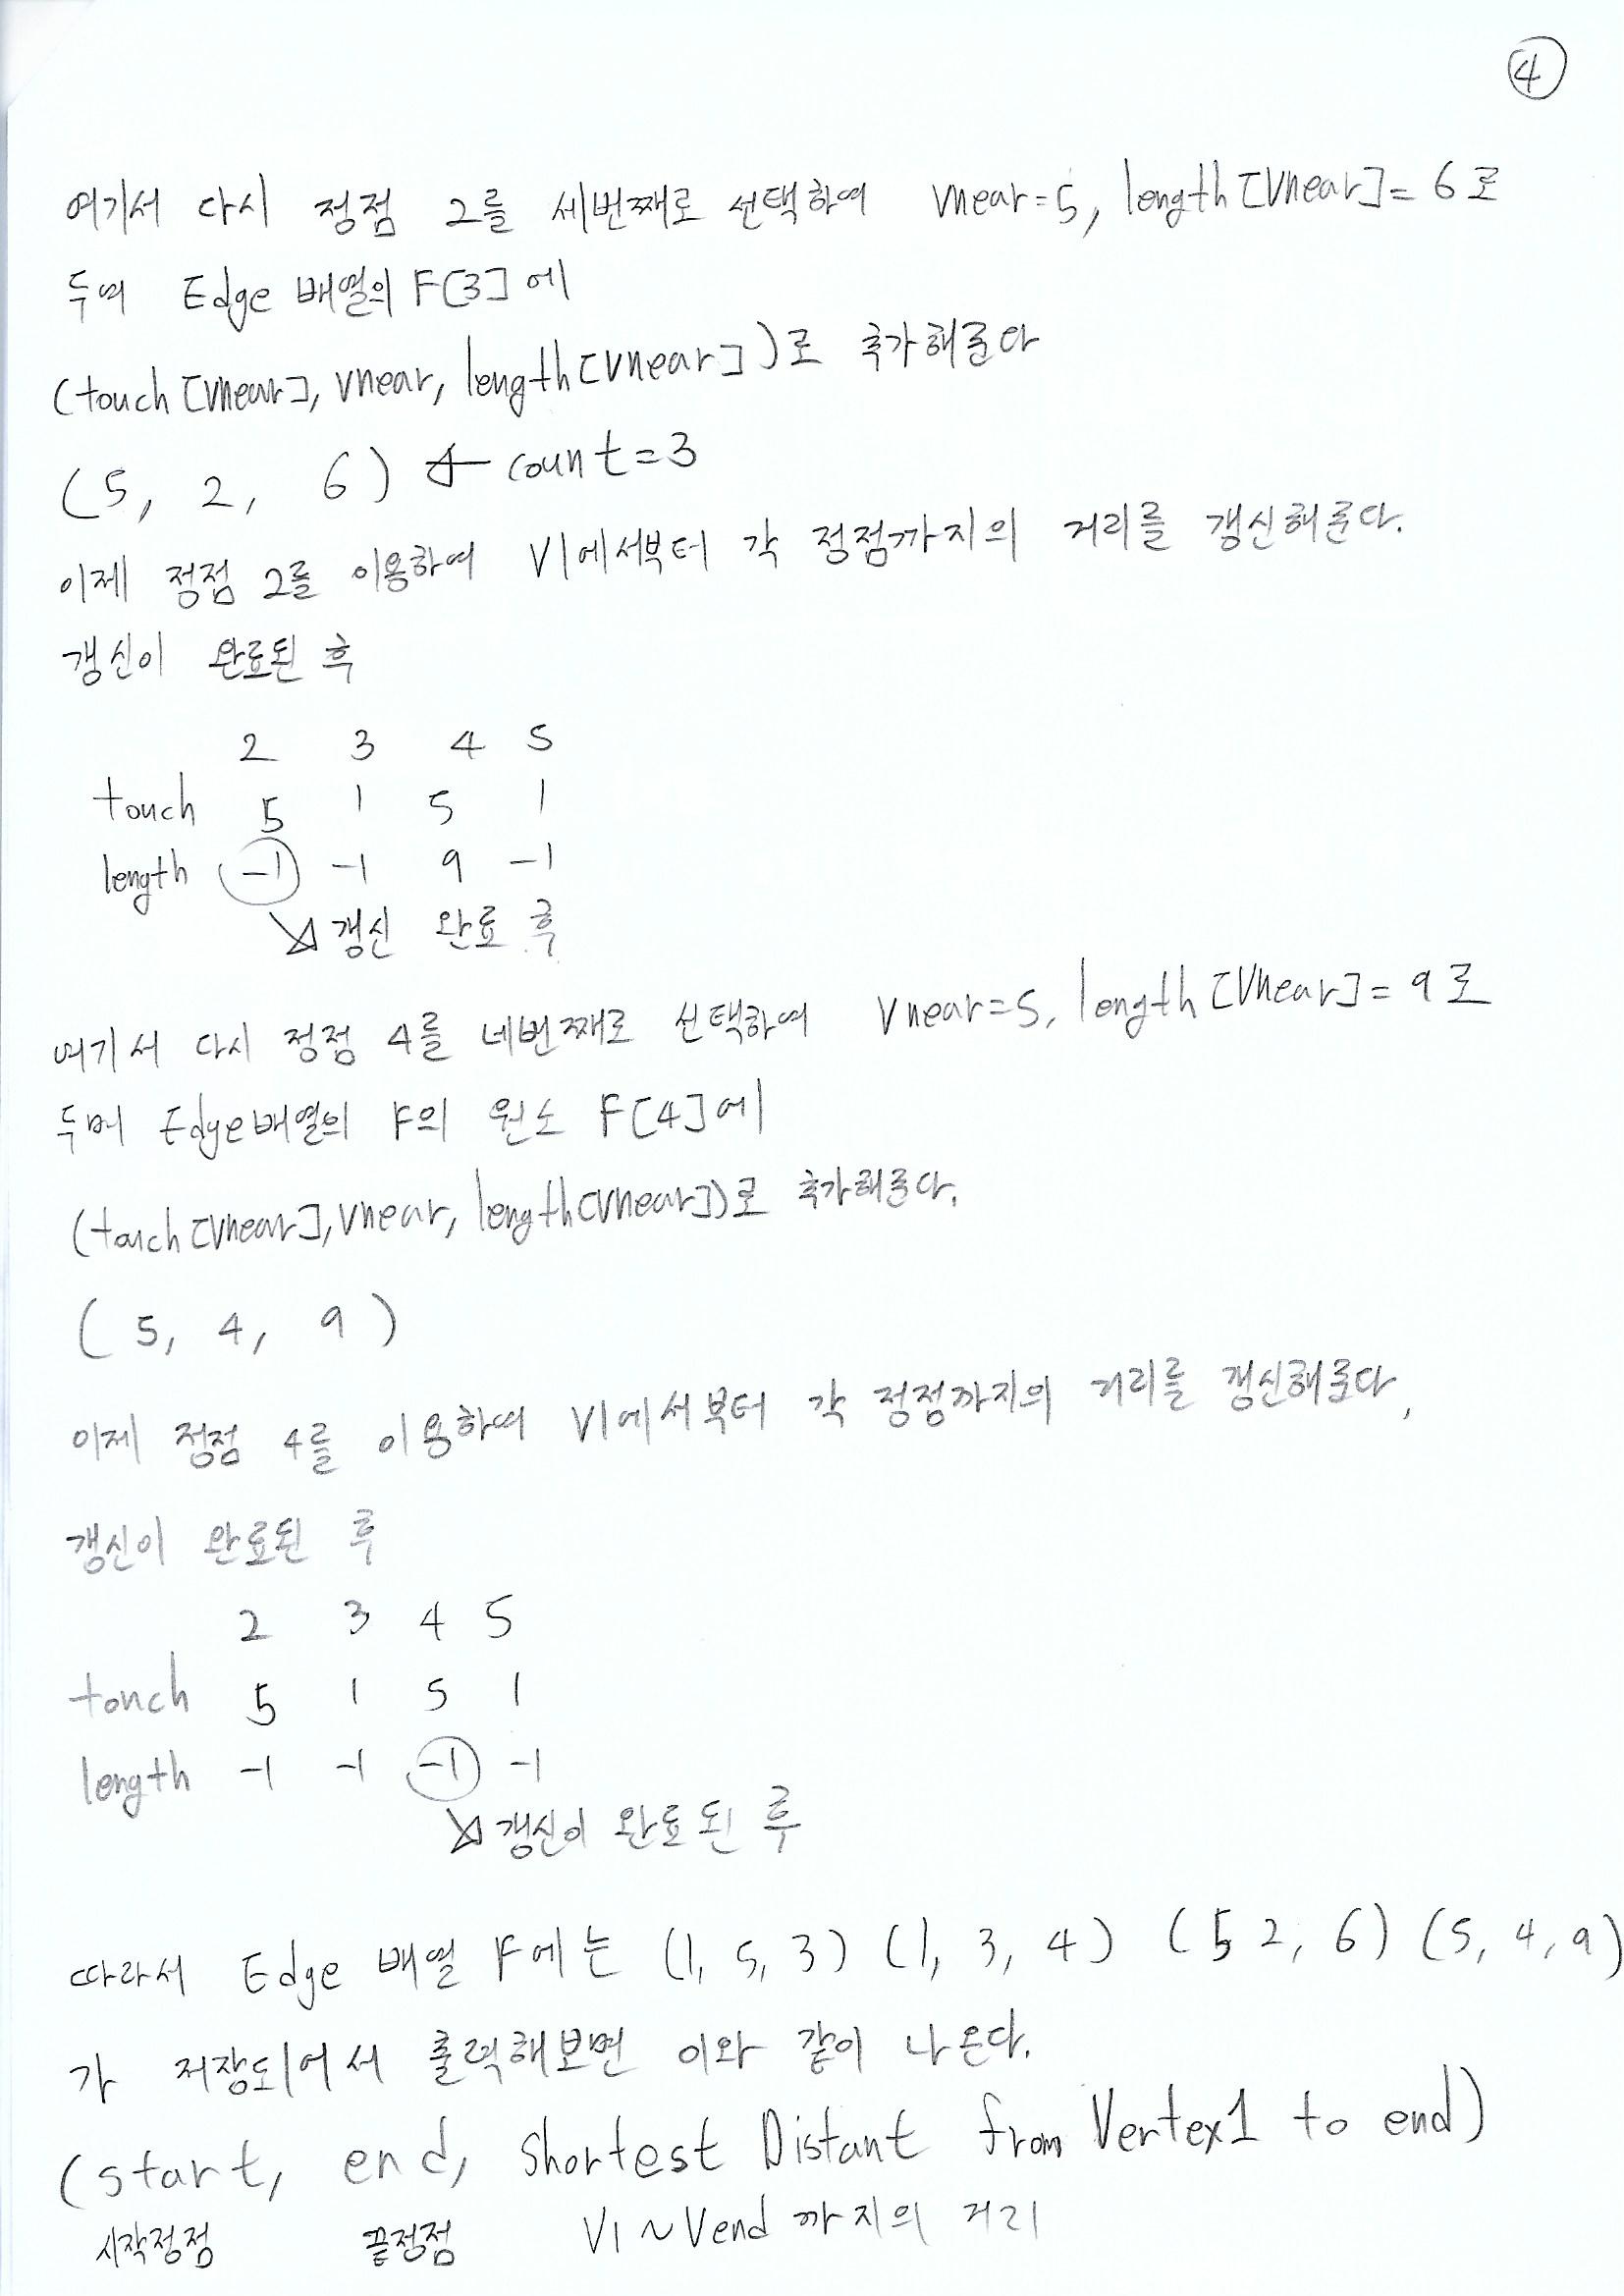 ④
여기서 다시 정점 2를 세번째로 선택하여 vnear=5, length[vnear]=6로
두며 Edge 배열의 F[3]에
(touch[vnear], vnear, length[vnear])로 추가해준다
(5, 2, 6) ← count=3
이제 정점 2를 이용하여 V1에서부터 각 정점까지의 거리를 갱신해준다.
갱신이 완료된 후
2 3 4 5
touch 5 1 5 1
length -1 -1 9 -1
↘갱신 완료 후
여기서 다시 정점 4를 네번째로 선택하여 vnear=5, length[vnear]=9로
두며 Edge배열의 F의 원소 F[4]에
(touch[vnear], vnear, length[vnear])로 추가해준다.
(5, 4, 9)
이제 정점 4를 이용하여 V1에서부터 각 정점까지의 거리를 갱신해준다,
갱신이 완료된 후
2 3 4 5
touch 5 1 5 1
length -1 -1 -1 -1
↘갱신이 완료된 후
따라서 Edge 배열 F에는 (1, 5, 3) (1, 3, 4) (5 2, 6) (5, 4, 9)
가 저장되어서 출력해보면 이와 같이 나온다.
(start, end, Shortest Distant from Vertex1 to end)
시작정점 끝정점 V1~Vend 까지의 거리